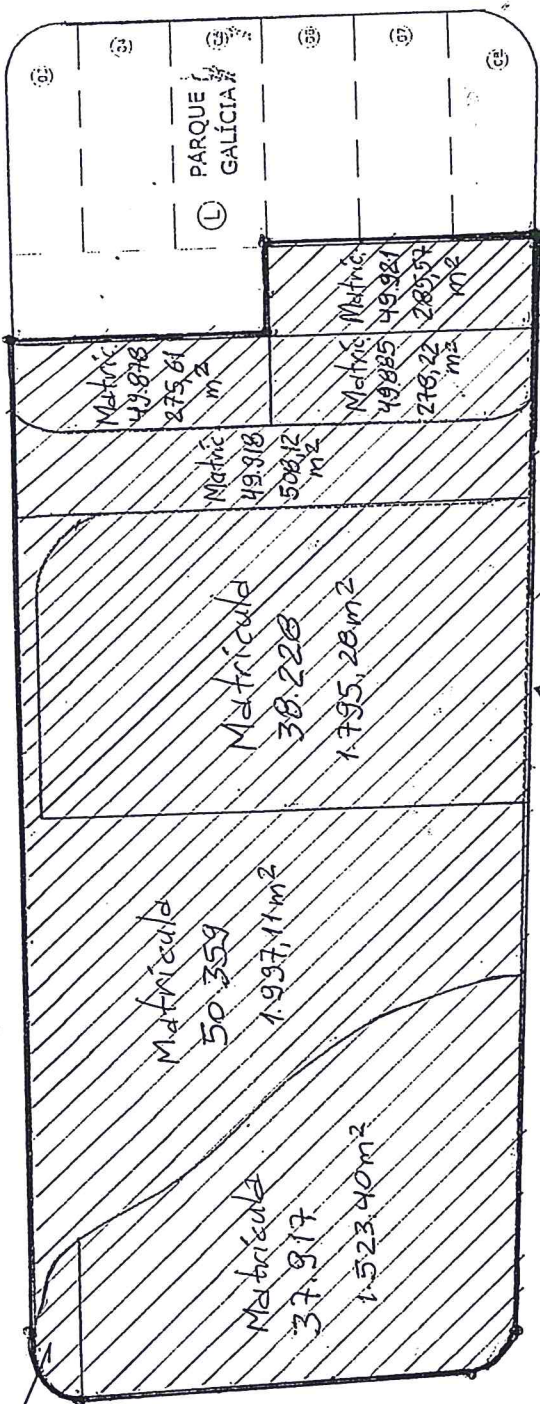 03
04
05
06
07
08
L PARQUE
GALÍCIA
Matríc
49.921
285,57
m²
Matríc
49.878
275,61
m²
Matríc
49885
278,22
m²
Matríc
49.918
508,12
m²
Matrícula
38.228
1.795,28m²
Matrícula
50.359
1.997,11m²
Matrícula
37.917
1.523,40m²